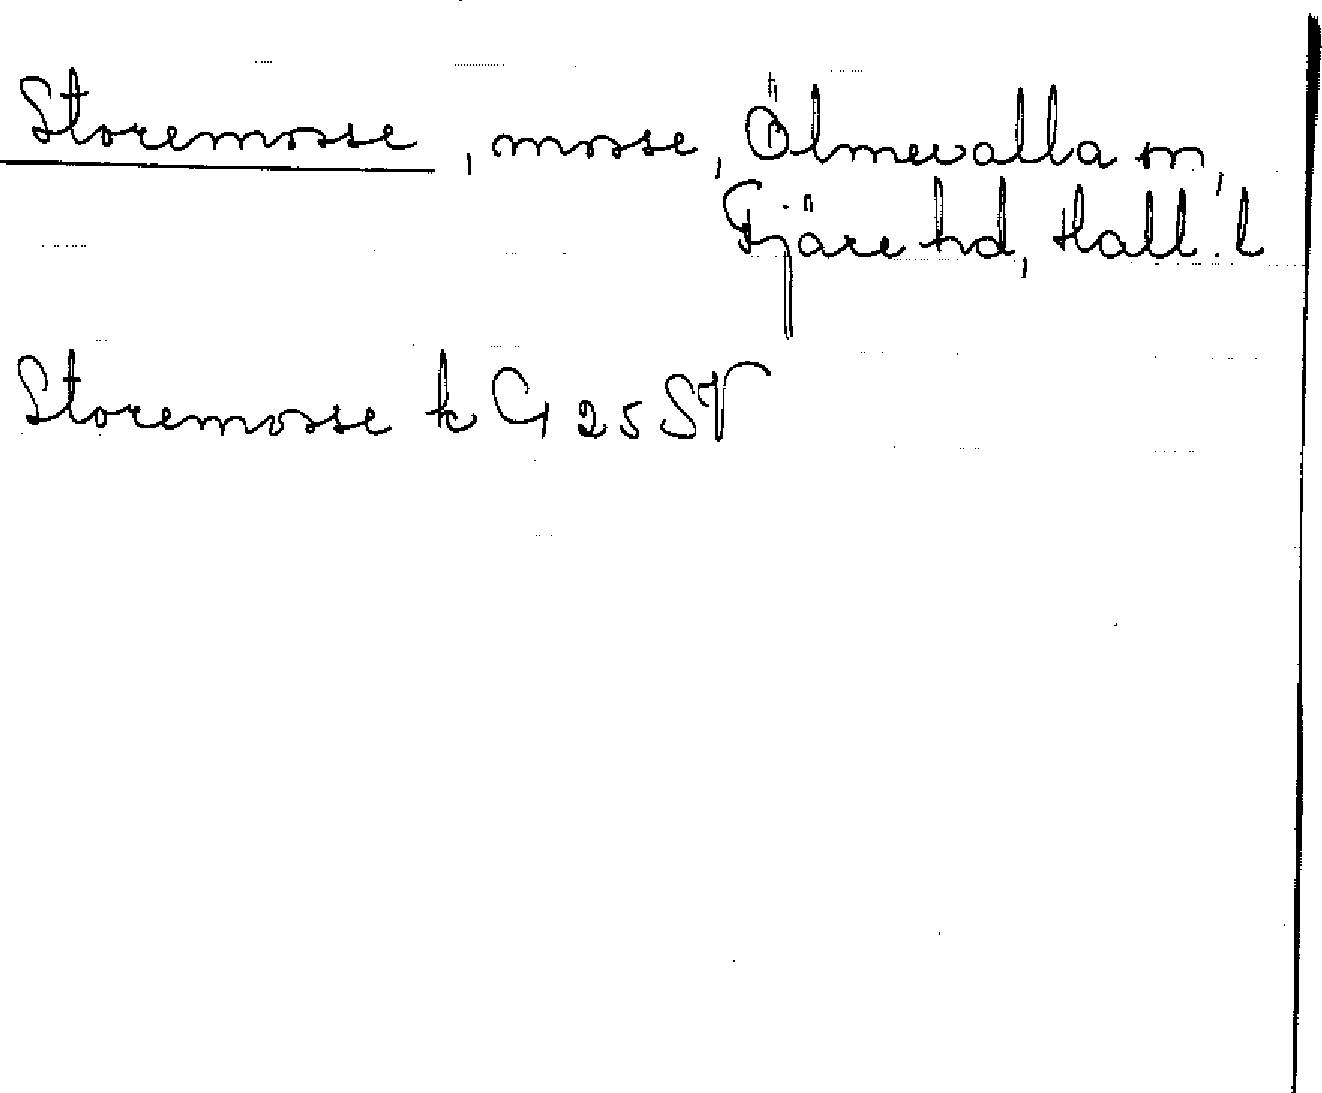 Storemosse, mosse, Ölmevalla sn,
Fjäre hd, Hall. l
Storemosse k G 25 SV